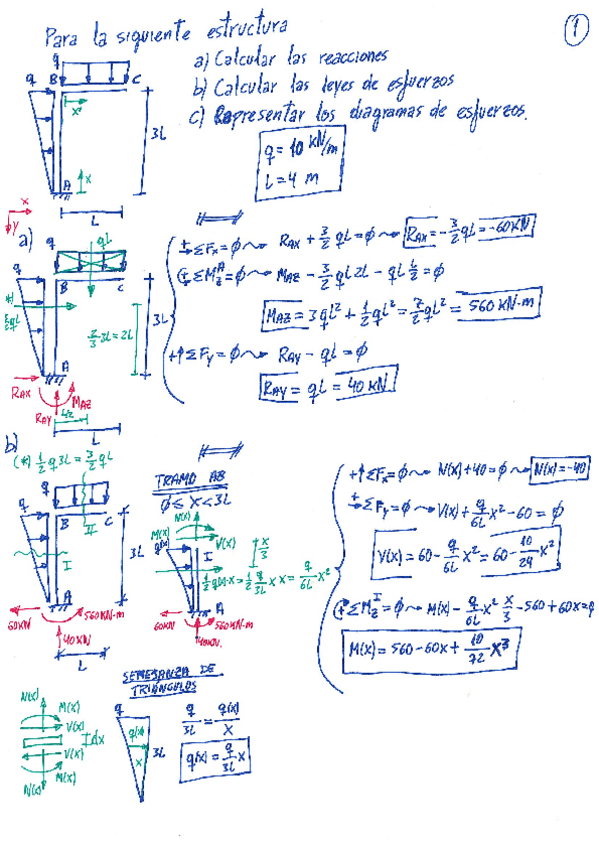 Para la siguiente estructura
1
a) Calcular las reacciones
b) Calcular las leyes de esfuerzos
c) Representar los diagramas de esfuerzos.
q = 10 kN/m
L = 4 m
q
q
B
C
x
3L
A
x
L
x
y
a)
q
qL
q
B
C
(*)
3/2 qL
2/3 3L = 2L
3L
A
RAX
MAZ
RAY
L/2
L
ΣFx = ∅ ⇝ RAX + 3/2 qL = ∅ ⇝ RAX = -3/2 qL = -60 KN
ΣM_z^A = ∅ ⇝ MAZ - 3/2 qL 2L - qL L/2 = ∅
MAZ = 3qL² + 1/2 qL² = 7/2 qL² = 560 KN·m
+↑ΣFy = ∅ ⇝ RAY - qL = ∅
RAY = qL = 40 KN
b)
(*) 1/2 q 3L = 3/2 qL
q
q
B
C
II
I
3L
A
60KN
560KN·m
40KN
L
TRAMO AB
0 ≤ x < 3L
N(x)
M(x)
V(x)
q(x)
I
x/3
1/2 q(x)·x = 1/2 q/3L x x = q/6L x²
A
60KN
560KN·m
40KN.
+↑ΣFx = ∅ ⇝ N(x) + 40 = ∅ ⇝ N(x) = -40
ΣFy = ∅ ⇝ V(x) + q/6L x² - 60 = ∅
V(x) = 60 - q/6L x² = 60 - 10/24 x²
ΣM_z^I = ∅ ⇝ M(x) - q/6L x² x/3 - 560 + 60x = ∅
M(x) = 560 - 60x + 10/72 x³
SEMEJANZA DE
TRIÁNGULOS
N(x)
M(x)
V(x)
dx
V(x)
M(x)
N(x)
q
q(x)
x
3L
q/3L = q(x)/x
q(x) = q/3L x